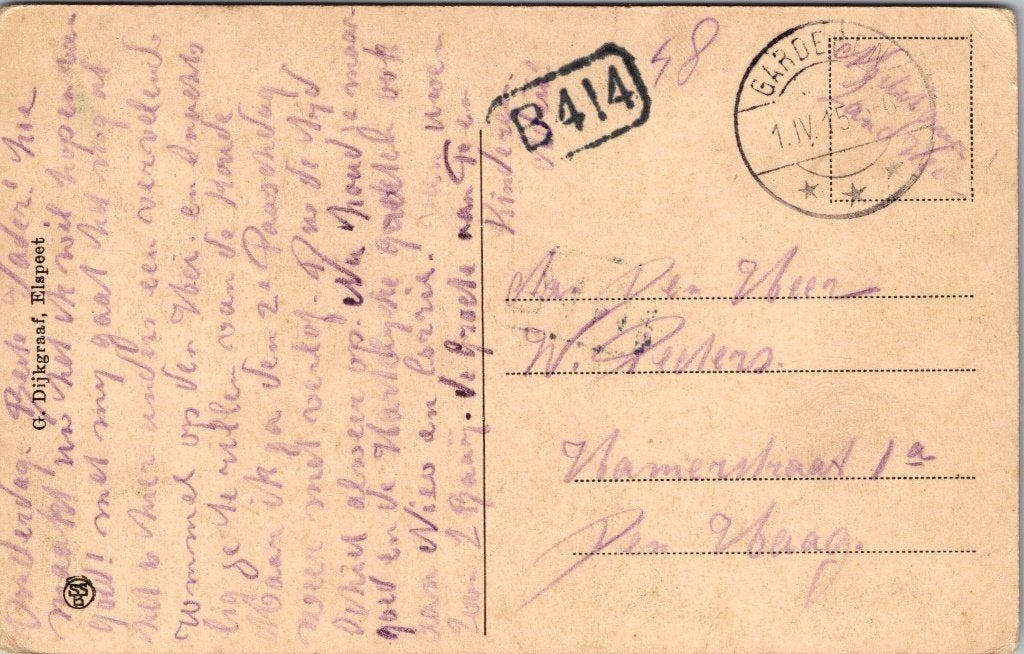 Donderdag. Beste Vader! hoe
maakt uw het ik wil hopen van
goed! met mij gaat het nog al
het is hier anders een vervelende
rommel op den Hei. en snachts
lig je te rillen van de Koude
Maar ik ga den 2e Paaschdag
weer met verlof. Dus de tijd
schiet alweer op. Nu houd je maar
goed en de Hartelijke groeten ook
aan Nico en Corrie. uwen
Zoon
de Groete aan
G. Dijkgraaf, Elspeet
B414
48
GARDEREN
1.IV.15
Aan Den Heer
W. Peeters.
Hamerstraat 1a
Den Haag.